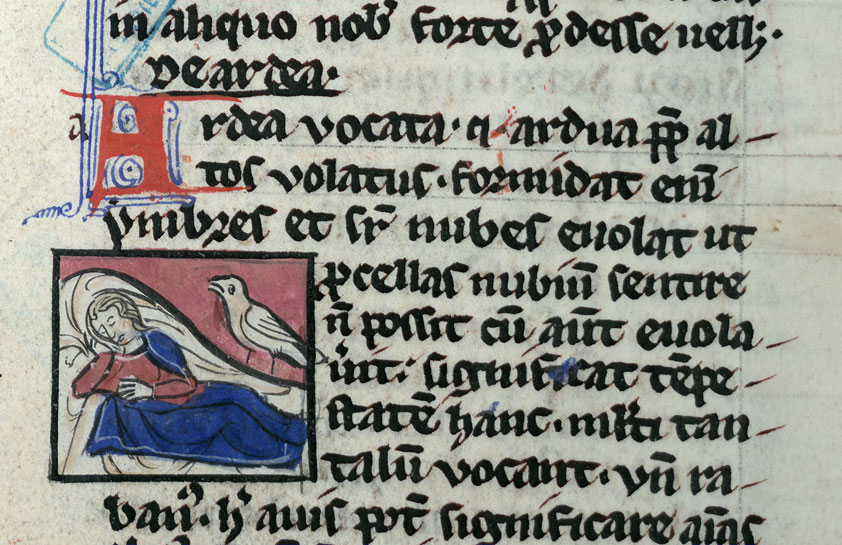 in aliquo nob̄ forte ꝓdesse uellꝫ.
De ardea.
Ardea vocata. q̄ ardua ꝓp̄ al-
tos volatus. formidat eni̅
ymbres et sr̄ nubes euolat ut
ꝓcellas nubiū sentire
n̄ possit cū aūt euola-
u̾it. significat te̅pe-
statē hanc. ml̄ti tan-
talū vocant. vn̄ ra-
ban᷒. h̾ auis pot̄ significare aīas